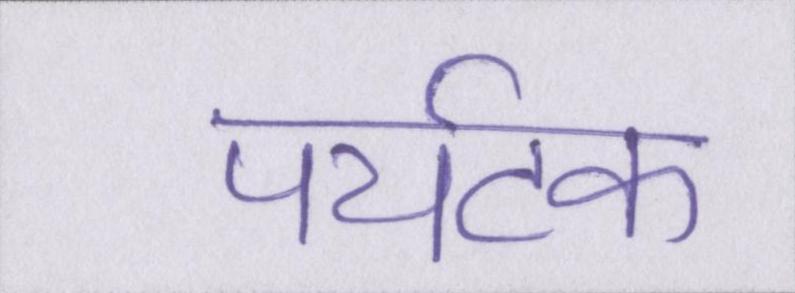 पर्यटक